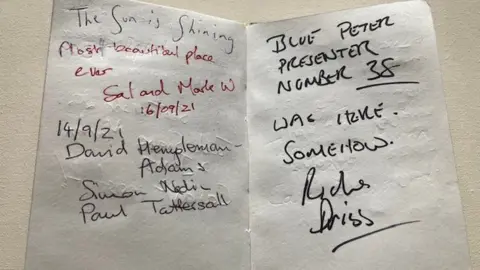 The Sun is Shining
Most beautiful place
ever
Sal and Mark W
16/09/21
14/9/21
David Hempleman-
Adams
Simon
Paul Tattersall
BLUE PETER
PRESENTER
NUMBER 38
WAS HERE.
SOMEHOW.